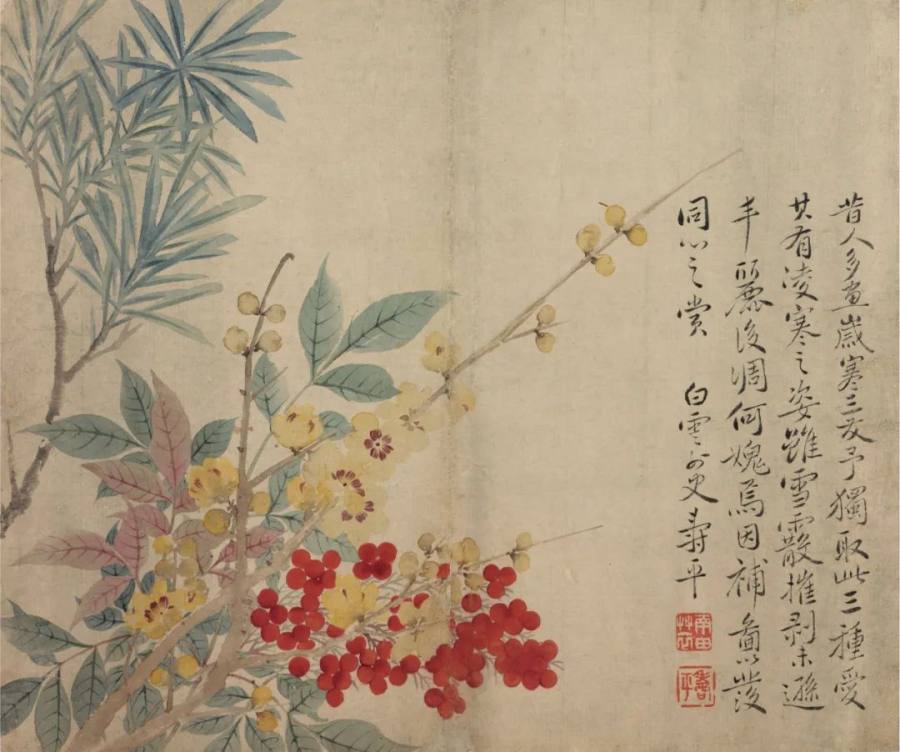 昔人多畫歲寒三友予獨取此三種愛
其有凌寒之姿雖雪霰摧剝未遜
丰麗後凋何媿焉因補圖以發
同心之賞 白雲外史壽平
南田艸衣
壽平